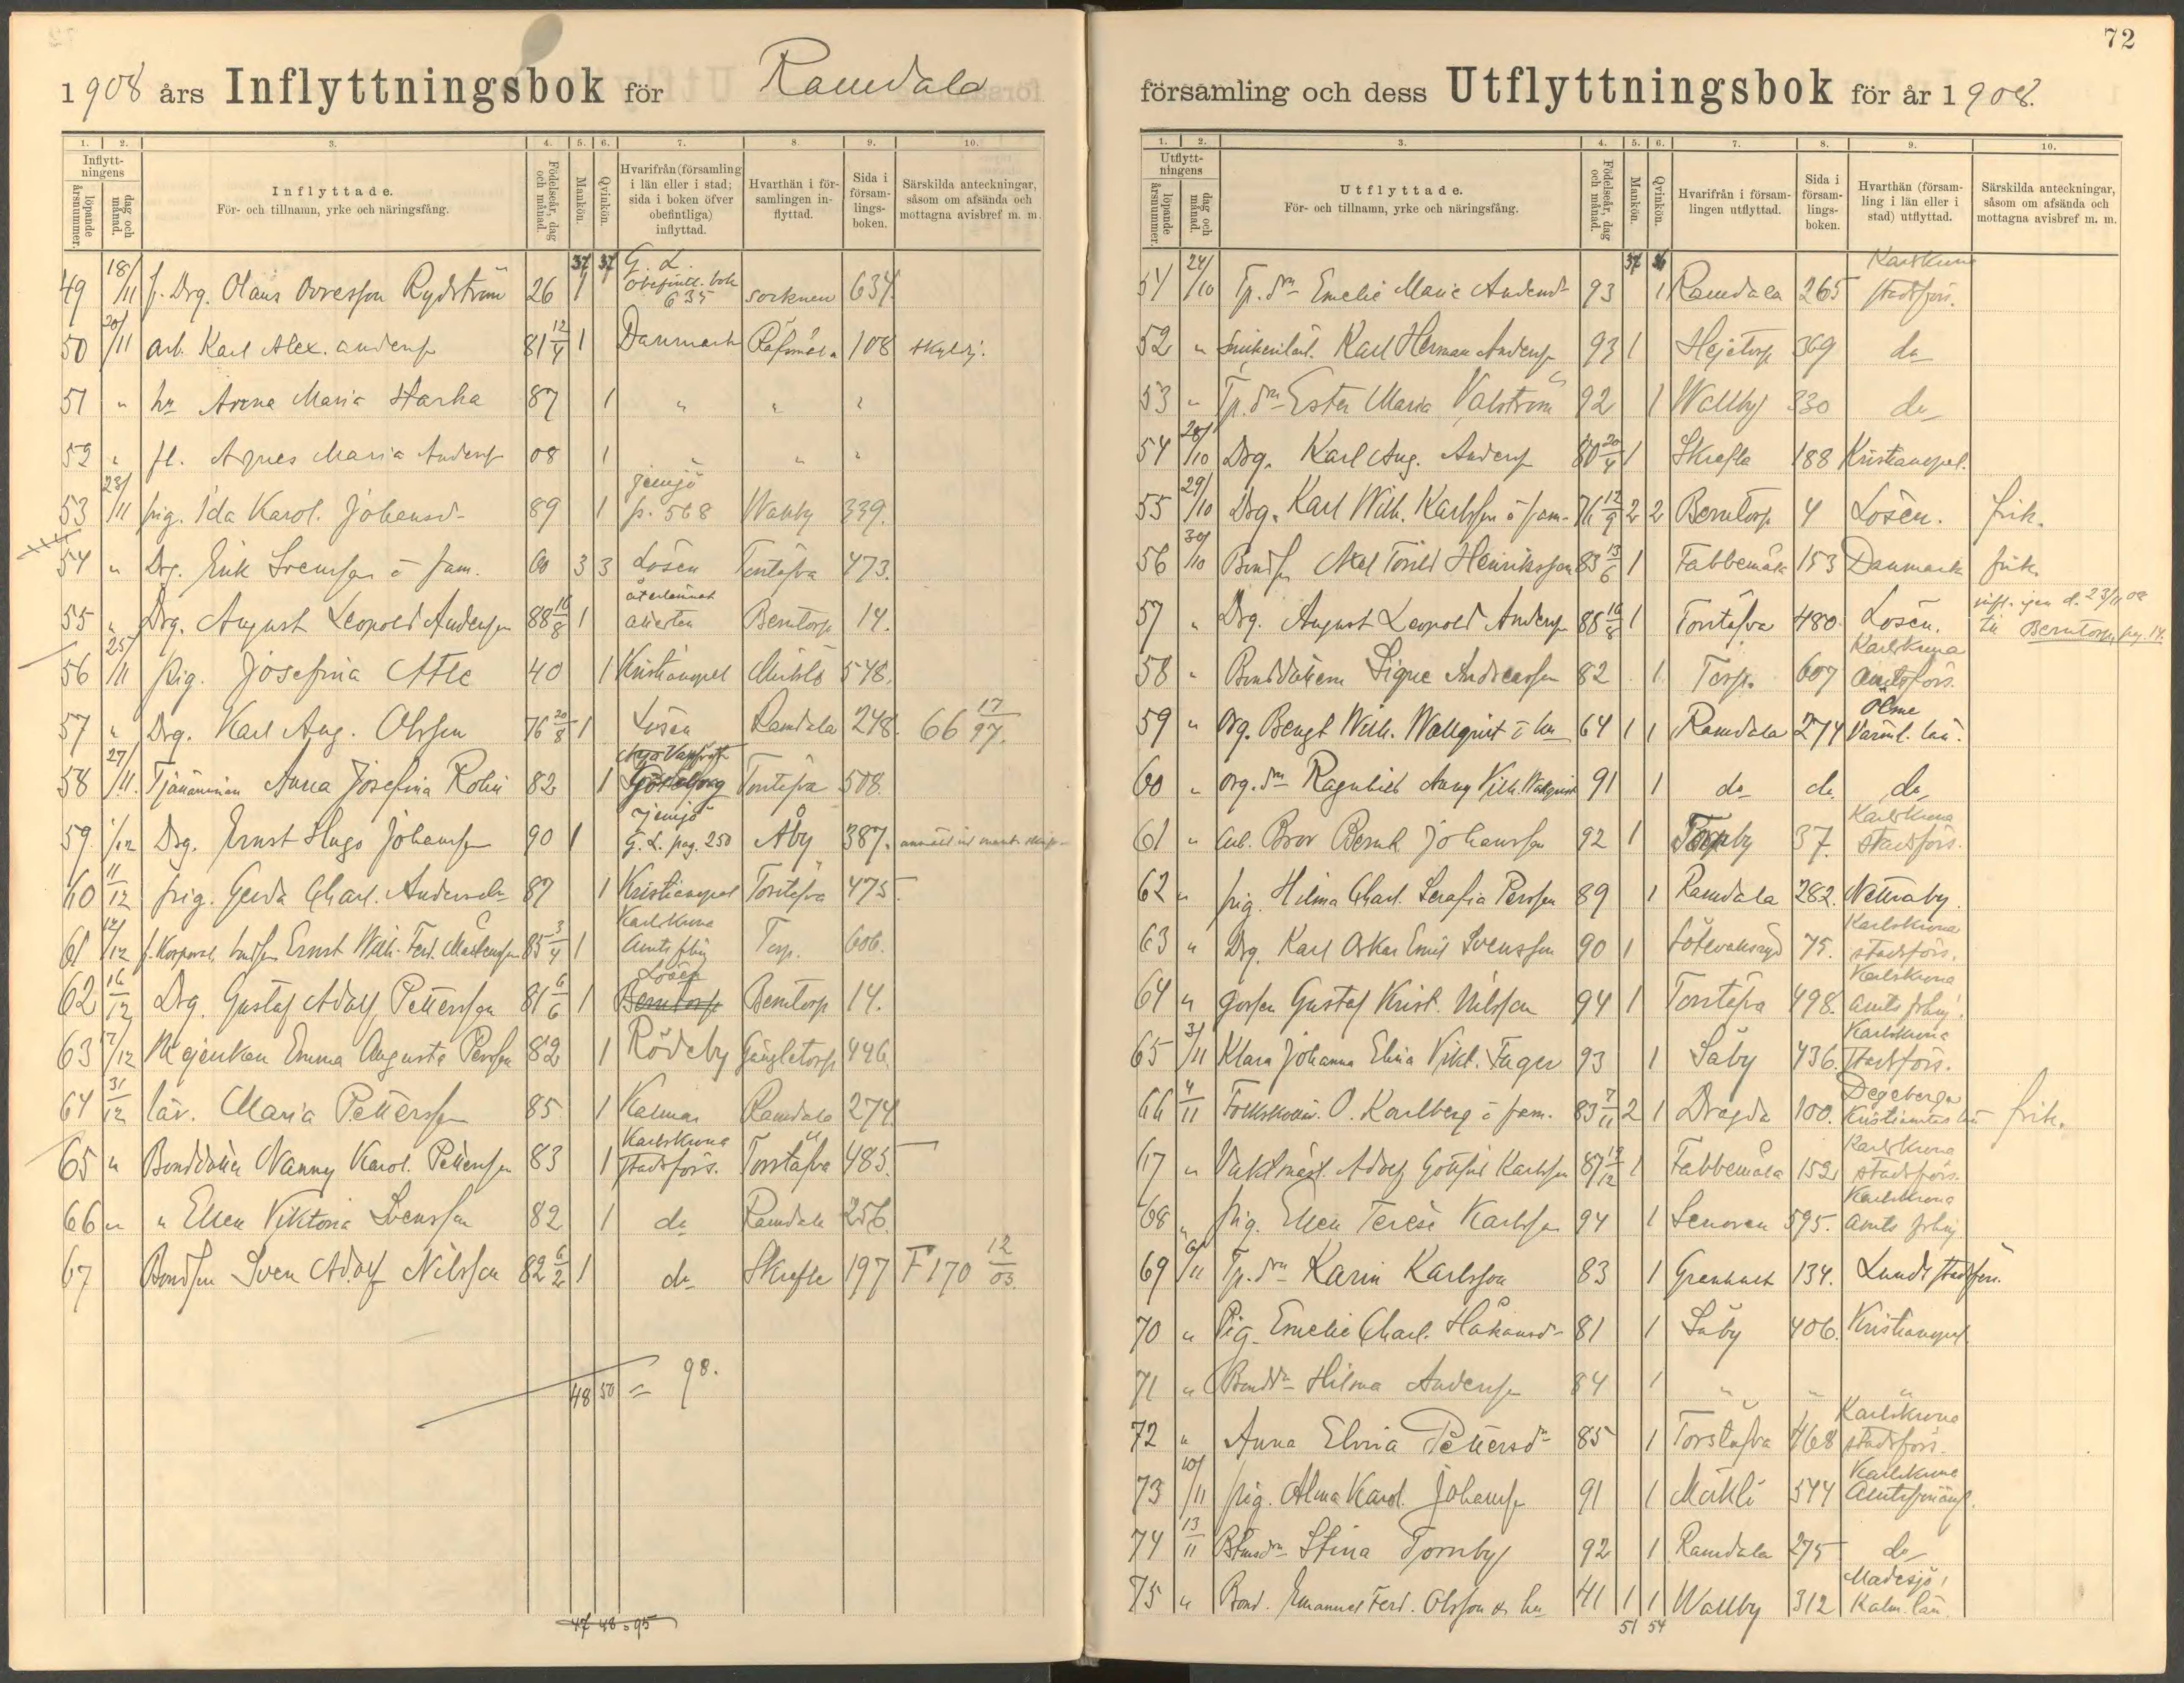 72
1908 års Inflyttningsbok för Ramdala
1. 2. 3. 4. 5. 6. 7. 8. 9. 10.
Inflyttningens
löpande årsnummer.
dag och månad.
Inflyttade.
För- och tillnamn, yrke och näringsfång.
Födelseår, dag och månad.
Mankön.
Qvinkön.
Hvarifrån (församling i län eller i stad; sida i boken öfver obefintliga) inflyttad.
Hvarthän i församlingen inflyttad.
Sida i församlingsboken.
Särskilda anteckningar, såsom om afsända och mottagna avisbref m. m.
37 37
49 18/11 f. Drg. Olaus Ovesson Rydström 26 1 G. L. obefintl. bok 635 socknen 634.
50 20/11 arb. Karl Alex. Anderss 81 12/4 1 Danmark 108
51 " hu Anna Maria Harha 87 1 " " "
52 " fl. Agnes Maria Anderss 08 1 " " "
53 23/11 pig. Ida Karol. Johansd- 89 1 Jemjö p. 568 Wallby 339.
54 " Drg. Erik Svensson o fam. 60 3 3 Lösen Torstäfva 473.
55 " Drg. August Leopold Anderssn 88 16/8 1 återlämnat Berntorp 14.
56 25/11 pig. Josefina Atle 40 1 Kristianopel Möcklö 548.
57 " Drg. Karl Aug. Olsson 76 20/8 1 Lösen Ramdala 248. 66 17/97.
58 27/11 Anna Josefina Rolin 82 1 Göteborg Torstäfva 508.
59. 1/12 Drg. Ernst Hugo Johanss 90 1 Jemjö G. L. pag. 250 Åby 387.
60 11/12 pig. Gerda Charl. Andersdr 87 1 Kristianopel Torstäfva 475
61 12/12 f. Korporal Ernst Wilh. Ferd. Mårtensson 85 3/4 1 Karlskrona Amts Torp. 606.
62 16/12 Drg. Gustaf Adolf Pettersson 81 6/6 1 Lösen Berntorp Berntorp 14.
63 17/12 Mejerskan Emma Augusta Persson 82 1 Rödeby Gängletorp 446.
64 31/12 lär. Maria Pettersson 85 1 Kalmar Ramdala 274
65 " Bonddotter Nanny Karol. Petterss 83 1 Karlskrona stadsförs. Torstäfva 485.
66 " " Ellen Viktoria Svensson 82 1 do Ramdala 256.
67 Bondson Sven Adolf Nilsson 82 6/2 1 do Skrefle 197 F 170 12/03.
48 50 = 98.
47 48 = 95
församling och dess Utflyttningsbok för år 1908.
1. 2. 3. 4. 5. 6. 7. 8. 9. 10.
Utflyttningens
löpande årsnummer.
dag och månad.
Utflyttade.
För- och tillnamn, yrke och näringsfång.
Födelseår, dag och månad.
Mankön.
Qvinkön.
Hvarifrån i församlingen utflyttad.
Sida i församlingsboken.
Hvarthän (församling i län eller i stad) utflyttad.
Särskilda anteckningar, såsom om afsända och mottagna avisbref m. m.
51 24/10 Tp. dr Emelie Marie Andersd- 93 1 Ramdala 265 Karlskrona stadsförs.
52 " Karl Herman Anderss 93 1 Hejetorp 369 do
53 " Tp. dr Ester Maria Valström 92 1 Wallby 330 do
54 28/10 Drg. Karl Aug. Anderss 80 20/4 1 Skrefle 188 Kristianopel.
55 29/10 Drg. Karl Wilh. Karlsson o fam. 76 12/9 2 2 Berntorp 4 Lösen. frik.
56 30/10 Bonds Axel Torild Henriksson 83 13/6 1 Fabbemåla 153 Danmark frik.
57 " Drg. August Leopold Anderss 88 16/8 1 Torstäfva 480. Lösen. infl. igen d. 23/11 08 till Berntorp, pag. 14.
58 " Bonddottern Signe Andreasson 82 1 Torp. 607 Karlskrona Amtsförs.
59 " Org. Bengt Wilh. Wallquist o hu 64 1 1 Ramdala 274 Ölme Värml. län.
60 " Org. dr Ragnhild Anny Vilh. Wallquist 91 1 do do do
61 " Arb. Bror Bernh. Johansson 92 1 Torpby 37. Karlskrona stadsförs.
62 " pig. Hilma Charl. Serafia Persson 89 1 Ramdala 282. Nettraby.
63 " Drg. Karl Oskar Emil Svensson 90 1 75. Karlskrona stadsförs.
64 " gossen Gustaf Krist. Nilsson 94 1 Torstäfva 498. Karlskrona amts
65 3/11 Klara Johanna Elina Vikt. Fager 93 1 Säby 436. Karlskrona stadsförs.
66 4/11 Folkskollär. O. Karlberg o fam. 83 7/11 2 1 Dragda 100. Degeberga Kristianstad län frik.
67 " Vaktmäst. Adolf Gottfrid Karlsson 87 19/12 1 Fabbemåla 152 Karlskrona stadsförs.
68 " pig. Ellen Terese Karlsson 94 1 Senoren 595. Karlskrona amts
69 6/11 Tp. dr Karin Karlsson 83 1 Grenhult 134. Lunds stadsförs.
70 " Pig. Emelie Charl. Håkansd- 81 1 Säby 406. Kristianopel
71 " Bonddr Hilma Anderss 84 1 " " "
72 " Anna Elvira Pettersdr 85 1 Torstäfva 468 Karlskrona stadsförs.
73 10/11 pig. Alma Karol. Johanss 91 1 Möcklö 544 Karlskrona
74 13/11 Stina Tornby 92 1 Ramdala 275 do
75 " Bond. Emanuel Ferd. Olsson o hu 41 1 1 Wallby 312 Madesjö, Kalm. län.
51 54